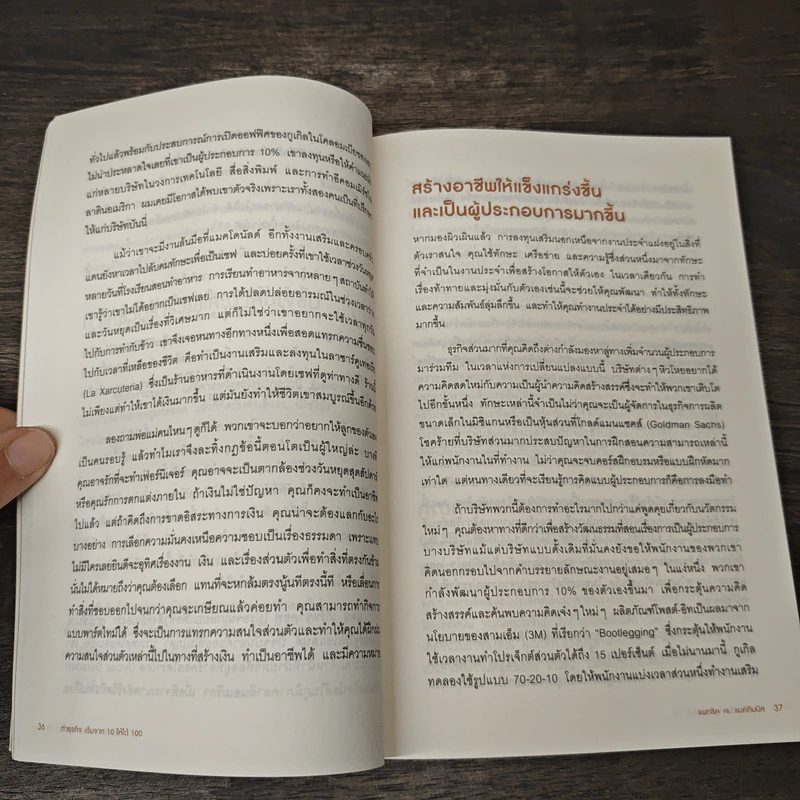 ทั่วไปแล้วพร้อมกับประสบการณ์การเปิดออฟฟิศของกูเกิลในโคลอมเบีย
ไม่น่าประหลาดใจเลยที่เขาเป็นผู้ประกอบการ 10% เขาลงทุนหรือให้คำแนะนำ
แก่หลายบริษัทในวงการเทคโนโลยี สื่อสิ่งพิมพ์ และการทำอีคอมเมิร์ซใน
ลาตินอเมริกา ผมเคยมีโอกาสได้พบเขาตัวจริงเพราะเราทั้งสองคนเป็นที่ปรึกษา
ให้แก่บริษัทบันนี่
แม้ว่าเขาจะมีงานล้นมือที่แมคโดนัลด์ อีกทั้งงานเสริมและครอบครัว
แดนยังหาเวลาไปลับคมทักษะเพื่อเป็นเชฟ และบ่อยครั้งที่เขาใช้เวลาช่วงวันหยุด
หลายวันที่โรงเรียนสอนทำอาหาร การเรียนทำอาหารจากหลายๆ สถาบันทำให้
เขารู้ว่าเขาไม่ได้อยากเป็นเชฟเลย การได้ปลดปล่อยอารมณ์ในช่วงเวลาว่าง
และวันหยุดเป็นเรื่องที่วิเศษมาก แต่ก็ไม่ใช่ว่าเขาอยากจะใช้เวลาทุกวัน
ไปกับการทำกับข้าว เขาจึงเจอหนทางอีกทางหนึ่งเพื่อสอดแทรกความชื่นชอบ
ไปกับเวลาที่เหลือของชีวิต คือทำเป็นงานเสริมและลงทุนในลาซาร์คูเทเรีย
(La Xarcuteria) ซึ่งเป็นร้านอาหารที่ดำเนินงานโดยเชฟที่ดูท่าทางดี ร้านนี้
ไม่เพียงแต่ทำให้เขาได้เงินมากขึ้น แต่มันยังทำให้ชีวิตเขาสมบูรณ์ขึ้นอีกด้วย
ลองถามพ่อแม่คนไหนๆ ดูก็ได้ พวกเขาจะบอกว่าอยากให้ลูกของตัวเอง
เป็นคนรอบรู้ แล้วทำไมเราจึงละทิ้งกฎข้อนี้ตอนโตเป็นผู้ใหญ่ล่ะ บางที
คุณอาจรักที่จะทำเฟอร์นิเจอร์ คุณอาจจะเป็นตากล้องช่วงวันหยุดสุดสัปดาห์
หรือคุณรักการตกแต่งภายใน ถ้าเงินไม่ใช่ปัญหา คุณก็คงจะทำเป็นอาชีพ
ไปแล้ว แต่ถ้าคิดถึงการขาดอิสระทางการเงิน คุณน่าจะต้องแลกกับอะไร
บางอย่าง การเลือกความมั่นคงเหนือความชอบเป็นเรื่องธรรมดา เพราะแทบ
ไม่มีใครเลยยินดีจะอุทิศเรื่องงาน เงิน และเรื่องส่วนตัวเพื่อทำสิ่งที่ตรงกันข้าม
นั่นไม่ได้หมายถึงว่าคุณต้องเลือก แทนที่จะหกล้มตรงนู้นทีตรงนี้ที หรือเลื่อนการ
ทำสิ่งที่ชอบออกไปจนกว่าคุณจะเกษียณแล้วค่อยทำ คุณสามารถทำกิจการ
แบบพาร์ตไทม์ได้ ซึ่งจะเป็นการแทรกความสนใจส่วนตัวและทำให้คุณได้ฝึกฝน
ความสนใจส่วนตัวเหล่านี้ไปในทางที่สร้างเงิน ทำเป็นอาชีพได้ และมีความหมาย
36 ทำธุรกิจ เริ่มจาก 10 ให้ได้ 100
สร้างอาชีพให้แข็งแกร่งขึ้น
และเป็นผู้ประกอบการมากขึ้น
หากมองผิวเผินแล้ว การลงทุนเสริมนอกเหนือจากงานประจำแฝงอยู่ในสิ่งที่
ตัวเราสนใจ คุณใช้ทักษะ เครือข่าย และความรู้ซึ่งส่วนหนึ่งมาจากทักษะ
ที่จำเป็นในงานประจำเพื่อสร้างโอกาสให้ตัวเอง ในเวลาเดียวกัน การทำ
เรื่องท้าทายและมุ่งมั่นกับตัวเองเช่นนี้จะช่วยให้คุณพัฒนา ทำให้ทั้งทักษะ
และความสัมพันธ์ลุ่มลึกขึ้น และทำให้คุณทำงานประจำได้อย่างมีประสิทธิภาพ
มากขึ้น
ธุรกิจส่วนมากที่คุณคิดถึงต่างกำลังมองหาลู่ทางเพิ่มจำนวนผู้ประกอบการ
มาร่วมทีม ในเวลาแห่งการเปลี่ยนแปลงแบบนี้ บริษัทต่างๆ หิวโหยอยากได้
ความคิดสดใหม่กับความเป็นผู้นำความคิดสร้างสรรค์ซึ่งจะทำให้พวกเขาเติบโต
ไปอีกขั้นหนึ่ง ทักษะเหล่านี้จำเป็นไม่ว่าคุณจะเป็นผู้จัดการในธุรกิจการผลิต
ขนาดเล็กในมิชิแกนหรือเป็นหุ้นส่วนที่โกลด์แมนแซคส์ (Goldman Sachs)
โชคร้ายที่บริษัทส่วนมากประสบปัญหาในการฝึกสอนความสามารถเหล่านี้
ให้แก่พนักงานในที่ทำงาน ไม่ว่าคุณจะจบคอร์สฝึกอบรมหรือแบบฝึกหัดมาก
เท่าใด แต่หนทางเดียวที่จะเรียนรู้การคิดแบบผู้ประกอบการก็คือการลงมือทำ
ถ้าบริษัทพวกนี้ต้องการทำอะไรมากไปกว่าแค่พูดคุยเกี่ยวกับนวัตกรรม
ใหม่ๆ คุณต้องหาทางที่ดีกว่าเพื่อสร้างวัฒนธรรมที่สอนเรื่องการเป็นผู้ประกอบการ
บางบริษัทแม้แต่บริษัทแบบดั้งเดิมที่มั่นคงยังขอให้พนักงานของพวกเขา
คิดนอกรอบไปจากคำบรรยายลักษณะงานอยู่เสมอๆ ในแง่หนึ่ง พวกเขา
กำลังพัฒนาผู้ประกอบการ 10% ของตัวเองขึ้นมา เพื่อกระตุ้นความคิด
สร้างสรรค์และค้นพบความคิดเจ๋งๆ ใหม่ๆ ผลิตภัณฑ์โพสต์-อิทเป็นผลมาจาก
นโยบายของสามเอ็ม (3M) ที่เรียกว่า “Bootlegging” ซึ่งกระตุ้นให้พนักงาน
ใช้เวลางานทำโปรเจ็กต์ส่วนตัวได้ถึง 15 เปอร์เซ็นต์ เมื่อไม่นานมานี้ กูเกิล
ทดลองใช้รูปแบบ 70-20-10 โดยให้พนักงานแบ่งเวลาส่วนหนึ่งทำงานเสริม
แพทริค เจ. แมคกินนิส 37